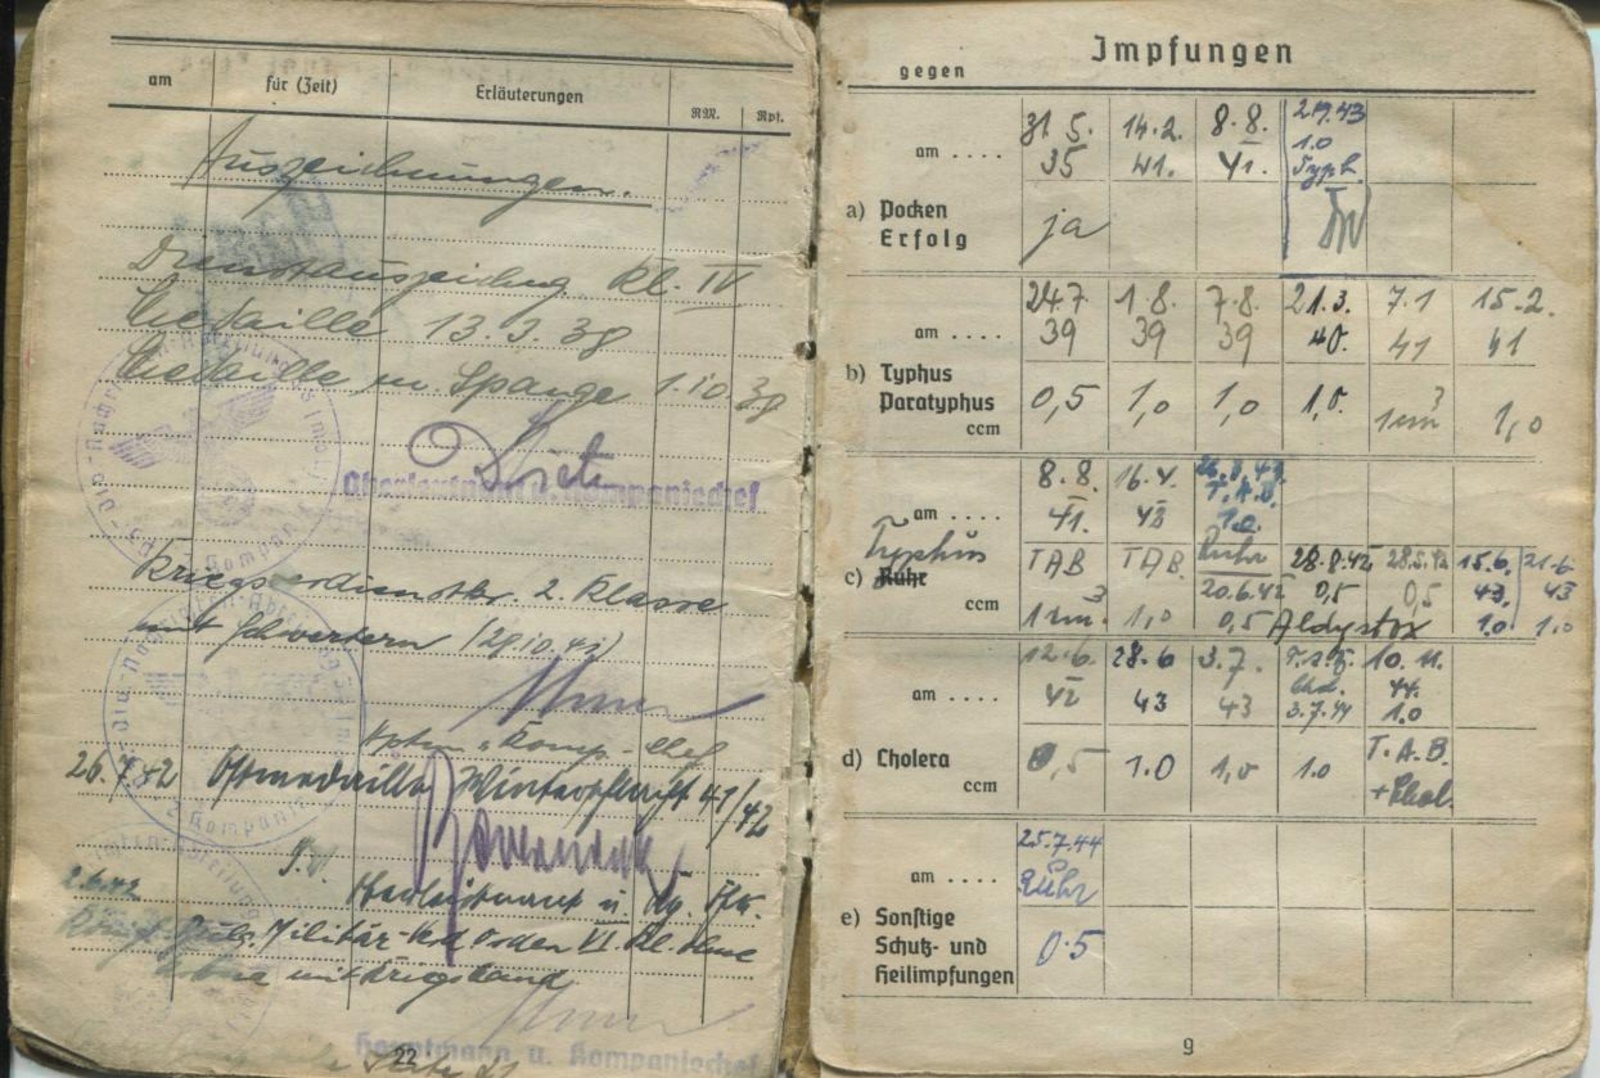 am für (Zeit) Erläuterungen RM. Rpf.
Auszeichnungen.
Dienstauszeichng. Kl. IV
Medaille 13.3.38
Medaille m. Spange 1.10.38
Oberleutnant u. Kompaniechef
Kriegsverdienstkr. 2. Klasse
mit Schwertern
Hptm u. Komp-Chef
26.7.42 Ostmedaille Winterschlacht 41/42
J.V.
Oberleutnant u.
2.6.42
Militär-Verd. Orden VI. Kl.
mit Kriegsband
Hauptmann u. Kompaniechef
22
Impfungen
gegen
am .... 31.5. 35 14.2. 41. 8.8. 41. 1.0 Typh.
a) Pocken
Erfolg ja
am .... 24.7. 39 1.8. 39 7.8. 39 21.3. 40. 7.1 41 15.2. 41
b) Typhus
Paratyphus
ccm 0,5 1,0 1,0 1,0. 1cm³ 1,0
am .... 8.8. 41. 16.4. T.A.B. 1.0.
Typhus
c) Ruhr TAB TAB. Ruhr 28.8.42 15.6. 43. 21.6 43
ccm 1cm³. 1,0 20.6.42 0,5 0,5 0,5 Aldystox 1.0. 1.0
am .... 12.6. 42 28.6 43 3.7. 43 Chol. 3.7.44 10.11. 44. 1.0
d) Cholera
ccm 0,5 1.0 1,0 1.0 T.A.B. + Chol.
am .... 25.7.44 Ruhr
e) Sonstige
Schutz- und
Heilimpfungen 0.5
9